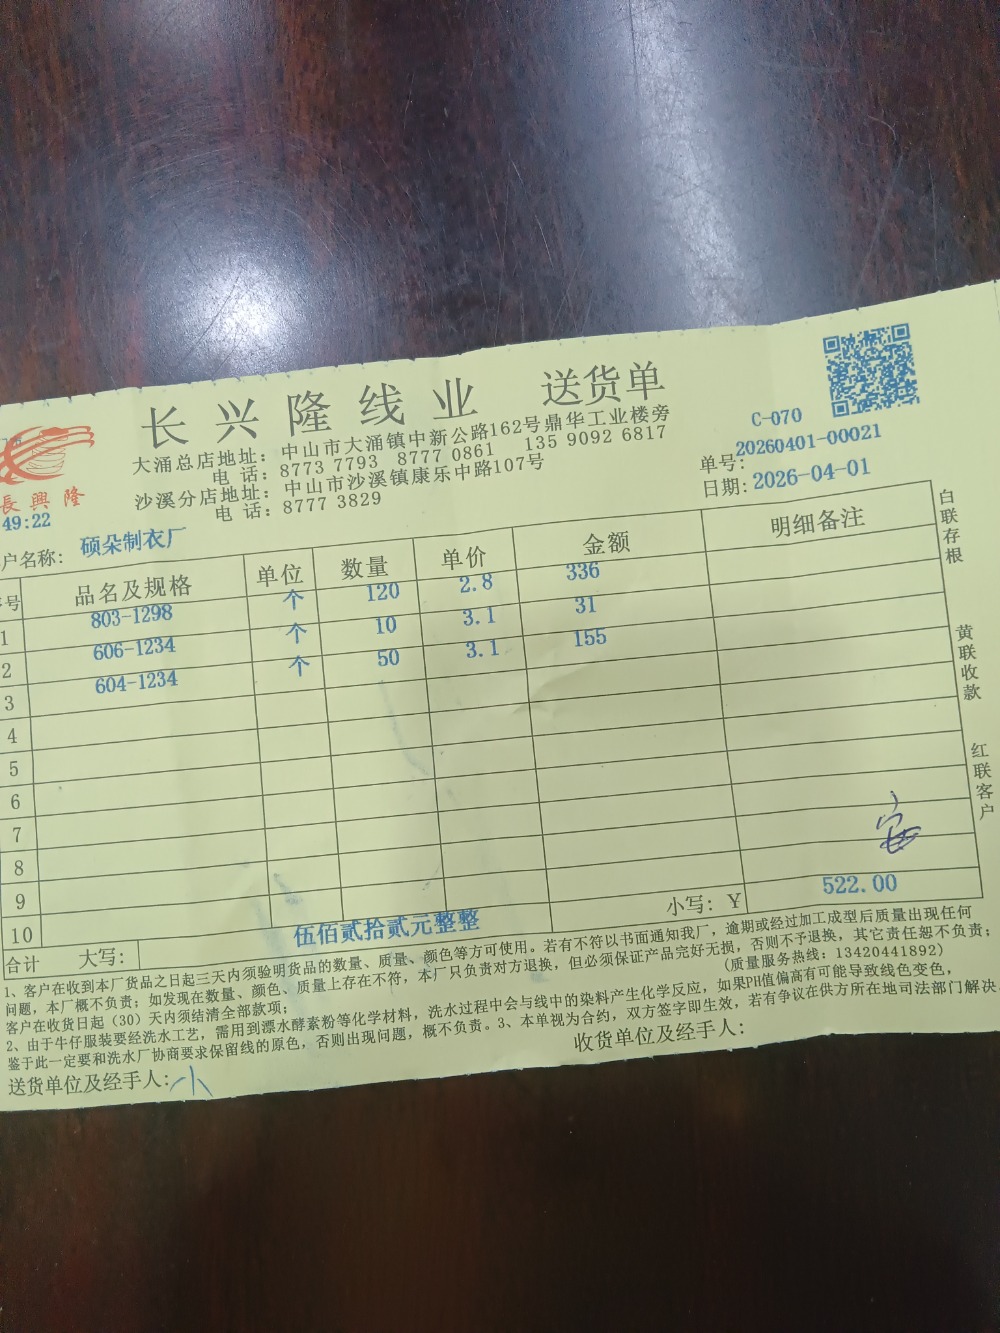 长兴隆线业 送货单
大涌总店地址：中山市大涌镇中新公路162号鼎华工业楼旁
电 话：8773 7793 8777 0861 135 9092 6817
沙溪分店地址：中山市沙溪镇康乐中路107号
电 话：8777 3829
長興隆
49:22
C-070
单号：20260401-00021
日期：2026-04-01
户名称：硕朵制衣厂
号 品名及规格 单位 数量 单价 金额 明细备注
1 803-1298 个 120 2.8 336
2 606-1234 个 10 3.1 31
3 604-1234 个 50 3.1 155
4
5
6
7
8
9
10
合计 大写：伍佰贰拾贰元整整 小写：￥ 522.00
白联存根
黄联收款
红联客户
1、客户在收到本厂货品之日起三天内须验明货品的数量、质量、颜色等方可使用。若有不符以书面通知我厂，逾期或经过加工成型后质量出现任何
问题，本厂概不负责；如发现在数量、颜色、质量上存在不符，本厂只负责对方退换，但必须保证产品完好无损，否则不予退换，其它责任恕不负责；
客户在收货日起（30）天内须结清全部款项；（质量服务热线：13420441892）
2、由于牛仔服装要经洗水工艺，需用到漂水酵素粉等化学材料，洗水过程中会与线中的染料产生化学反应，如果PH值偏高有可能导致线色变色，
鉴于此一定要和洗水厂协商要求保留线的原色，否则出现问题，概不负责。3、本单视为合约，双方签字即生效，若有争议在供方所在地司法部门解决
送货单位及经手人：小
收货单位及经手人：